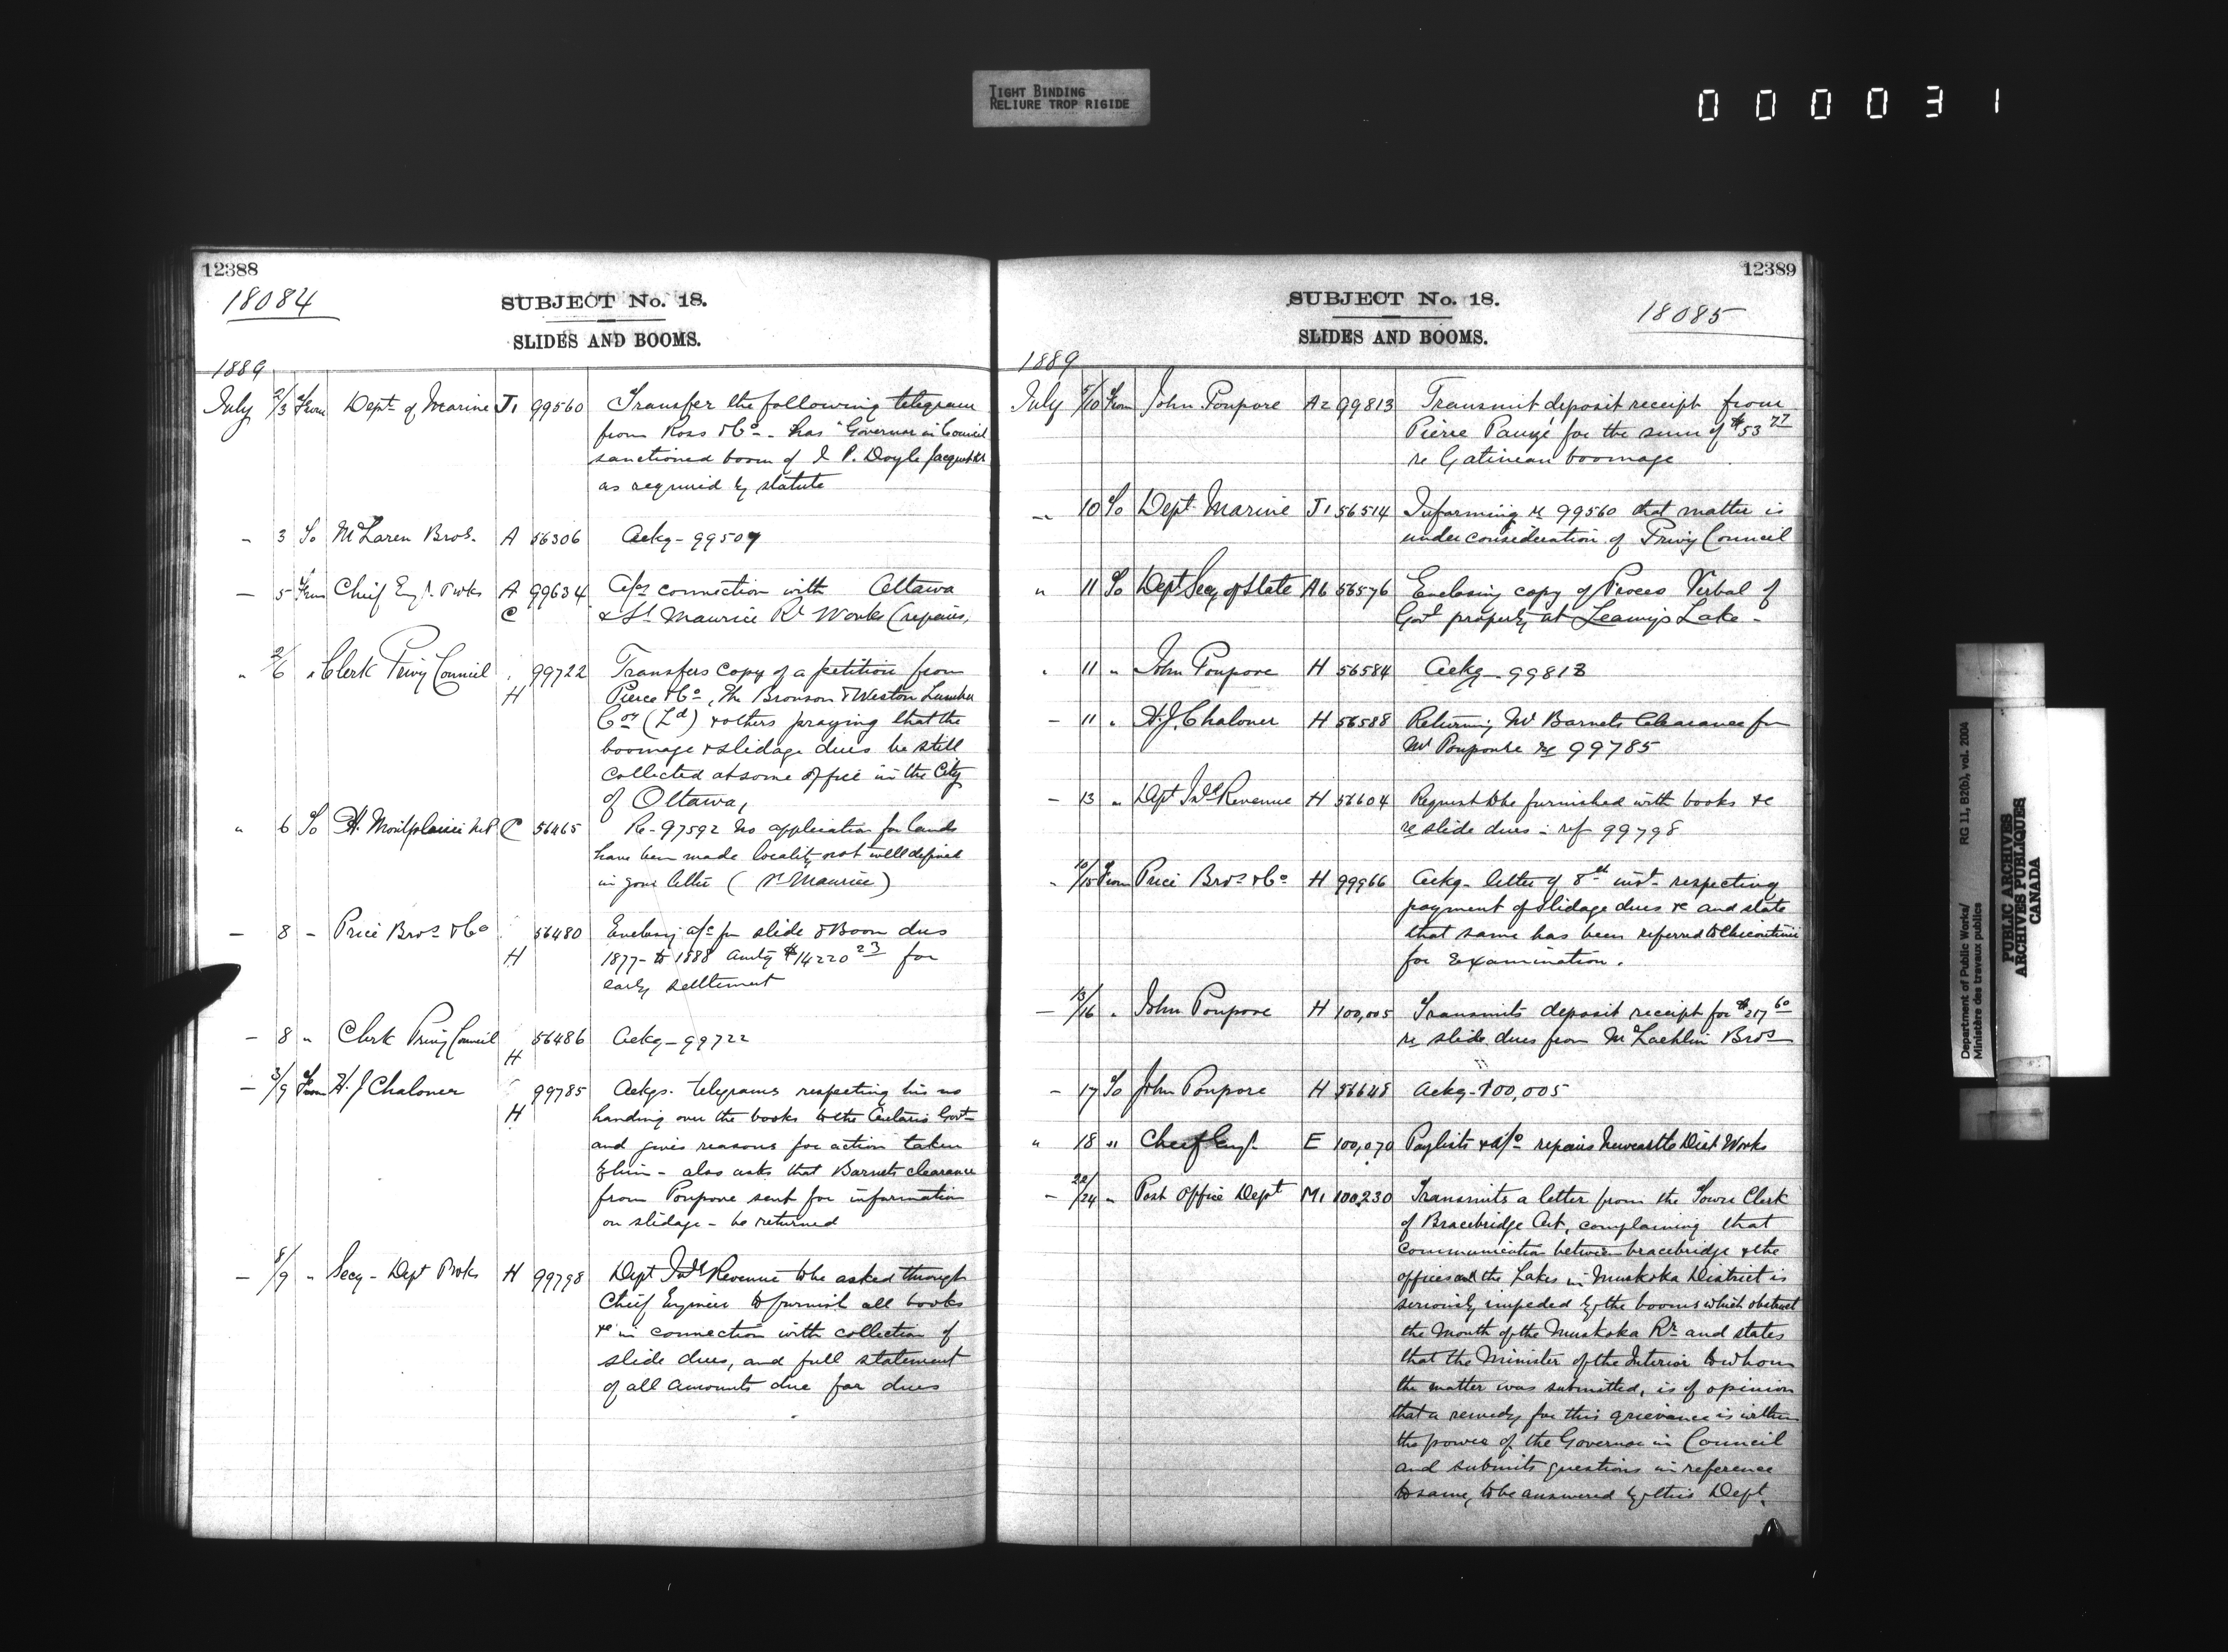 TIGHT BINDING
RELIURE TROP RIGIDE
000031
12388
18084
SUBJECT No. 18.
SLIDES AND BOOMS.
1889
July 2/3 From Dept. of Marine J1 99560 Transfer the following telegram
from Ross & Co. has "Governor in Council
sanctioned boom of P. Doyle
as required by statute
" 3 To McLaren Bros. A 56306 Ackg - 99509
" 5 From Chief Eng. P Wks A 99634 a/cs connection with Ottawa
C & St Maurice Rr Works (repairs,
" 2/6 " Clerk Privy Council 99722 Transfers copy of a petition from
H Pierce & Co, The Bronson & Weston Lumber
Coy (Ld) & others praying that the
boomage & slidage dues be still
collected at some office in the City
of Ottawa,
" 6 To H. Montplaisir M.P. C 56465 Re - 97592 No application for lands
have been made locality not well defined
in your letter (St Maurice)
- 8 " Price Bros & Co 56480 Enclosing a/c for slide & Boom dues
H 1877 - to 1888 amtg $14220 23 for
early settlement
- 8 " Clerk Privy Council 56486 Ackg - 99722
H
- 3/9 From H. J Chaloner 99785 Ackgs. telegrams respecting his no
H handing over the books to the Ontario Govt
and gives reasons for action taken
by him - also asks that Barnets clearance
from Poupore sent for information
on slidage - be returned
- 8/9 " Secy - Dept P Wks H 99798 Dept Inld Revenue to be asked through
Chief Engineer to furnish all books
&c in connection with collection of
slide dues, and full statement
of all amounts due for dues
12389
SUBJECT No. 18.
18085
SLIDES AND BOOMS.
1889
July 5/10 From John Poupore A2 99813 Transmit deposit receipt from
Pierre Pauzé for the sum of $53 77
re Gatineau boomage
" 10 To Dept. Marine J1 56514 Informing re 99560 that matter is
under consideration of Privy Council
" 11 To Dept Secy of State A6 56576 Enclosing copy of Proces Verbal of
Govt property at Leamys Lake -
" 11 " John Poupore H 56584 Ackg - 99813
- 11 " H. J. Chaloner H 56588 Returning Mr Barnets Clearance for
Mr Poupore re 99785
- 13 " Dept Inld Revenue H 56604 Request to be furnished with books &c
re slide dues - ref 99798
" 10/15 From Price Bros & Co H 99966 Ackg - letter of 8th inst. respecting
payment of slidage dues &c and state
that same has been referred to Chicoutimi
for Examination.
- 13/16 " John Poupore H 100,005 Transmits deposit receipt for $217 60
re slide dues from McLachlin Bros
- 17 To John Poupore H 56648 Ackg - 100,005
" 18 " Chief Eng. E 100,070 Paylists & a/c repairs Newcastle Dist Works
- 22/24 " Post Office Dept M1 100230 Transmits a letter from the Town Clerk
of Bracebridge Ont, complaining that
communication between bracebridge & the
offices on the Lakes in Muskoka District is
seriously impeded by the booms which obstruct
the Mouth of the Muskoka Rr. and states
that the Minister of the Interior to whom
the matter was submitted, is of opinion
that a remedy for this grievance is within
the power of the Governor in Council
and submits questions in reference
to same, to be answered by this Dept.
Department of Public Works/ RG 11, B2(b), vol. 2004
Ministère des travaux publics
PUBLIC ARCHIVES
ARCHIVES PUBLIQUES
CANADA